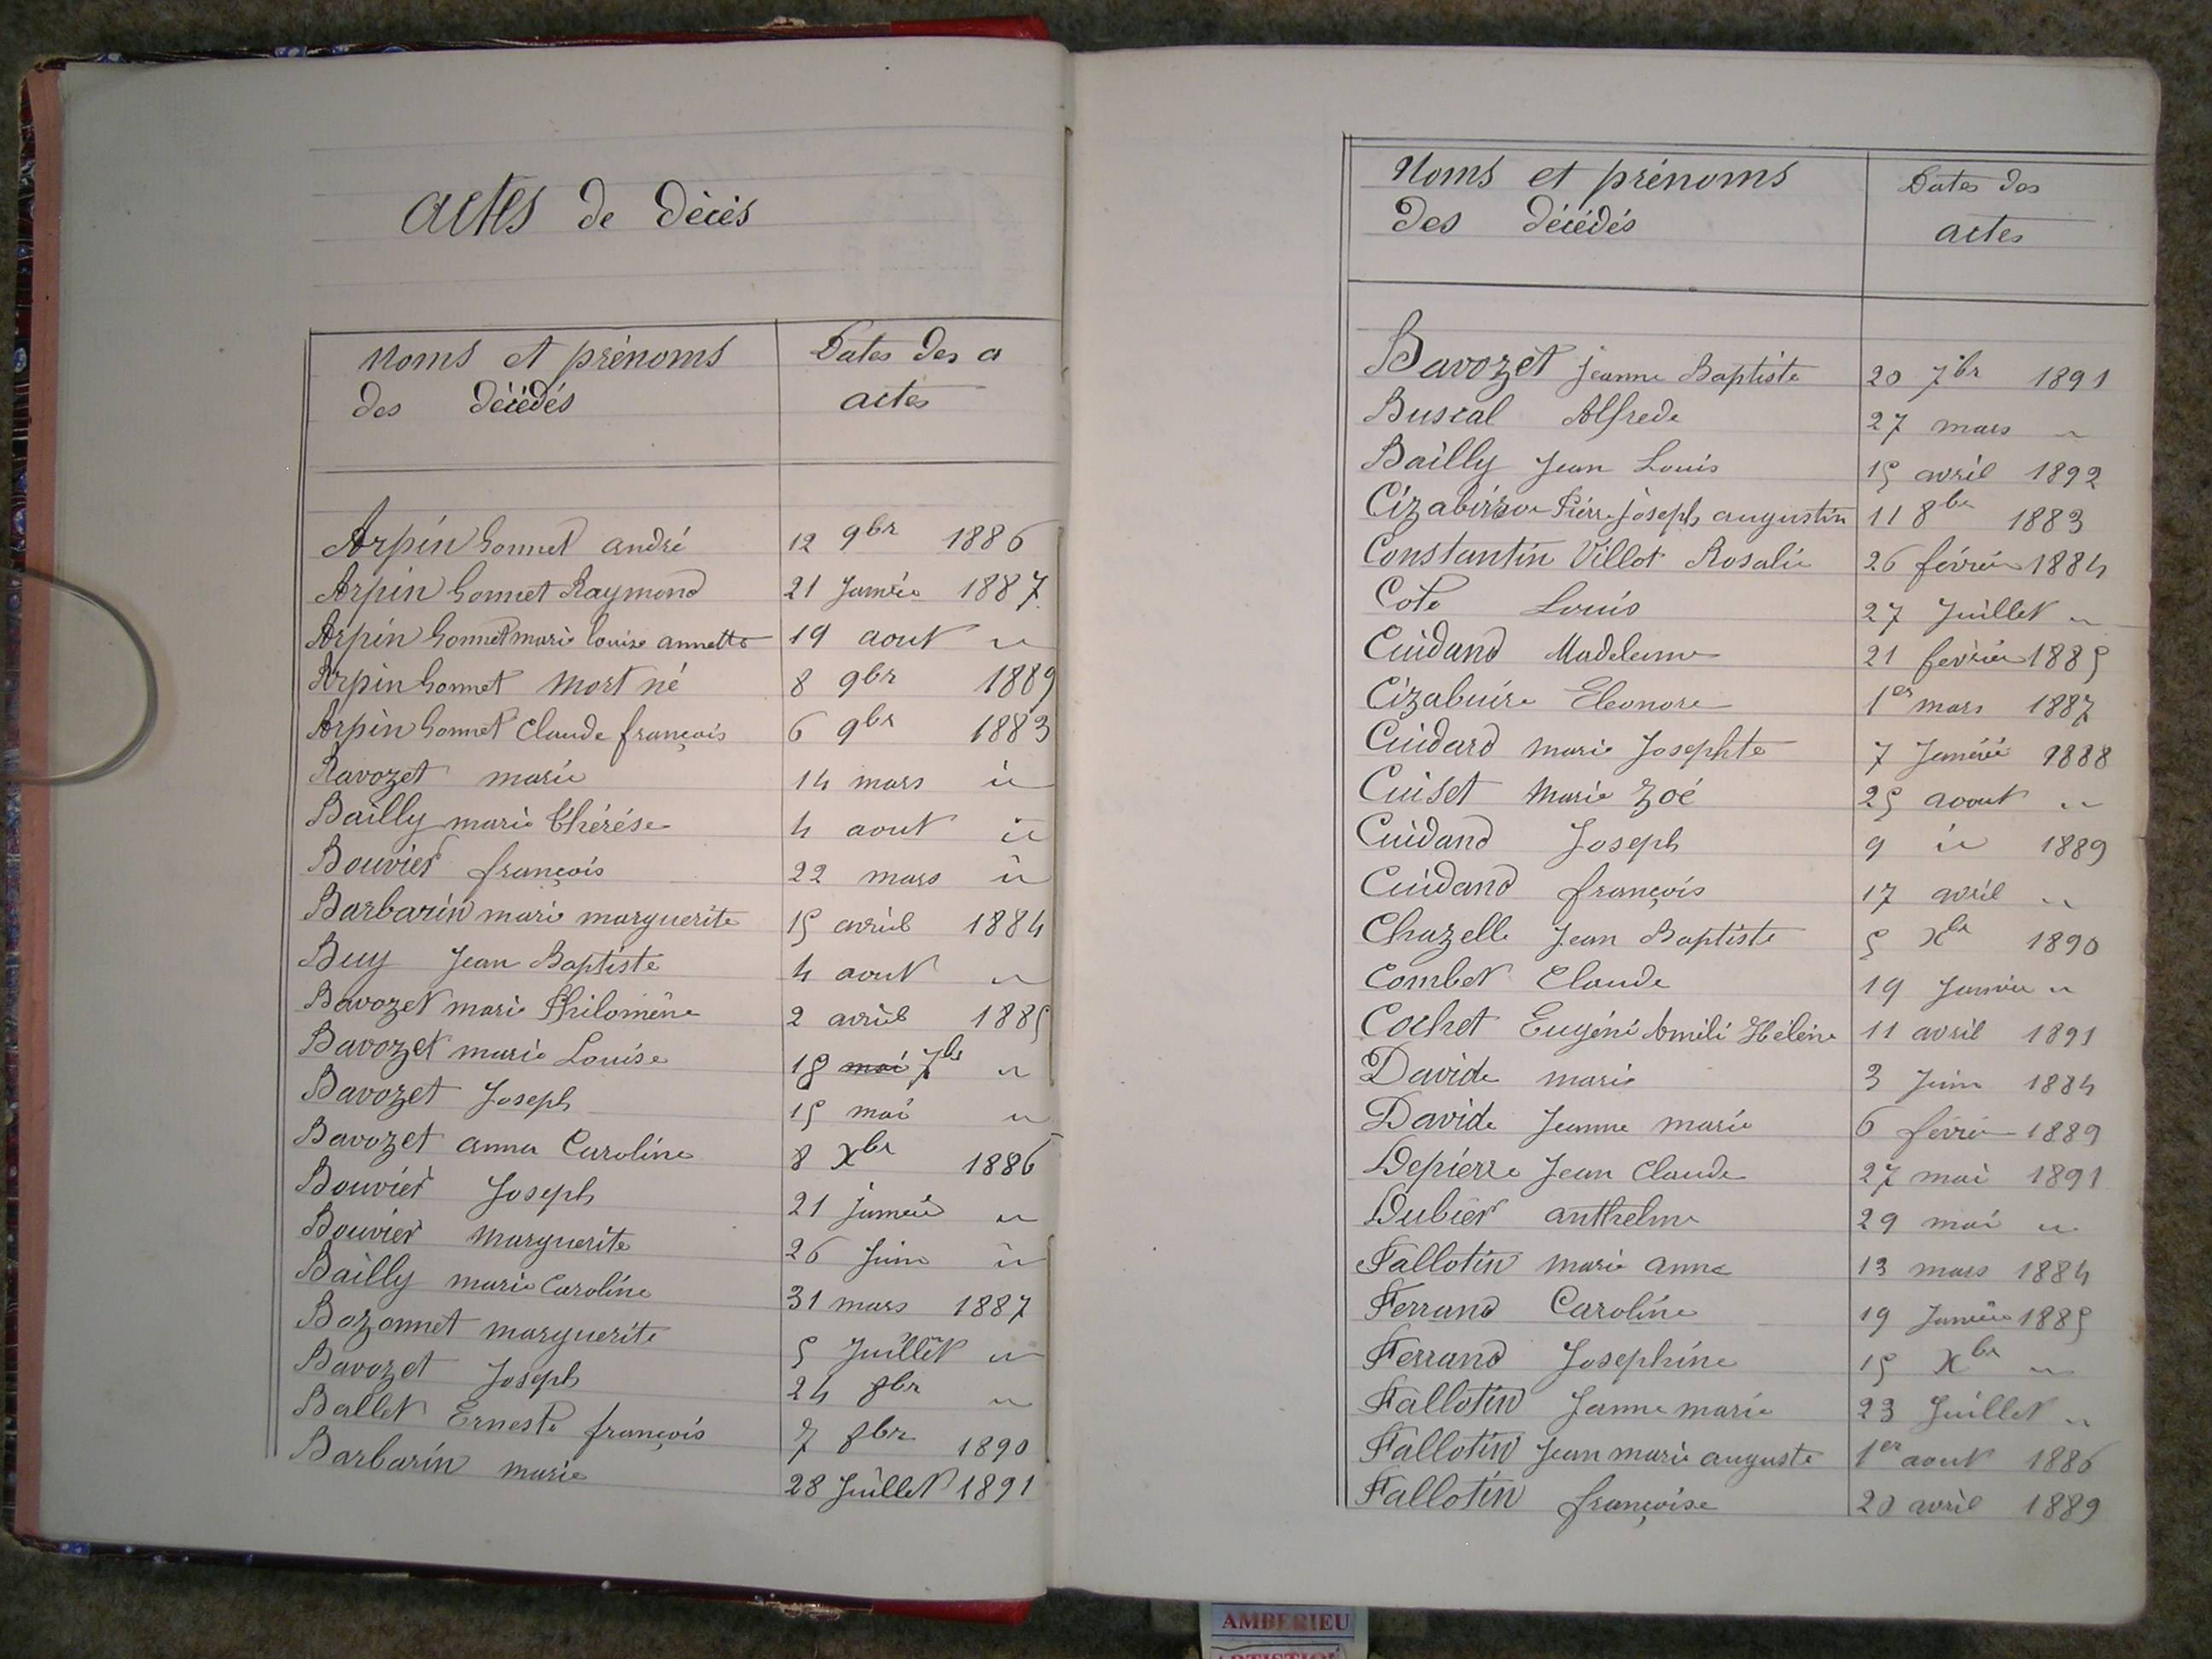 actes de décès
Noms et prénoms
des décédés
Dates des a
actes
Arpin Gonnet andré 12 9br 1886
Arpin Gonnet Raymond 21 Janvier 1887
Arpin Gonnet marie louise annette 19 aout "
Arpin Gonnet Mort né 8 9br 1889
Arpin Gonnet Claude françois 6 9br 1883
Ravozet marie 14 mars "
Bailly marie thérése 4 aout "
Bouvier françois 22 mars "
Barbarin marie marguerite 15 avril 1884
Buy Jean Baptiste 4 aout "
Bavozet marie Philoméne 2 avril 1885
Bavozet marie Louise 18 mai 7br "
Bavozet Joseph 15 mai "
Bavozet anna Caroline 8 Xbr 1886
Bouvier Joseph 21 janvier "
Bouvier Marguerite 26 Juin "
Bailly marie Caroline 31 mars 1887
Bozonnet marguerite 5 Juillet "
Bavozet Joseph 24 8br "
Ballet Erneste françois 7 8br 1890
Barbarin marie 28 Juillet 1891
Noms et prénoms
des décédés
Dates des
actes
Bavozet Jeanne Baptiste 20 7br 1891
Buscal Alfrede 27 mars "
Bailly Jean Louis 15 avril 1892
Pierre joseph augustin 11 8br 1883
Constantin Villot Rosalie 26 février 1884
Cote Louis 27 Juillet "
Cuidand Madeleine 21 fevrier 1885
Cizabuire Eleonore 1er mars 1887
Cuidard marie Josephte 7 Janvier 1888
Cuiset Marie Zoé 25 aout "
Cuidand Joseph 9 " 1889
Cuidand françois 17 avril "
Chazelle Jean Baptiste 5 Xbr 1890
Combet Claude 19 Janvier "
Cochet Eugéni Améli Héléne 11 avril 1891
Davide marie 3 Juin 1884
Davide Jeanne marie 6 févrie 1889
Depierre Jean Claude 27 mai 1891
Dubier anthelme 29 mai "
Fallotin marie anne 13 mars 1884
Ferrand Caroline 19 Janvier 1885
Ferrand Josephine 15 Xbr "
Fallotin Jeanne marie 23 Juillet "
Fallotin Jean marie auguste 1er aout 1886
Fallotin françoise 20 avril 1889
AMBERIEU